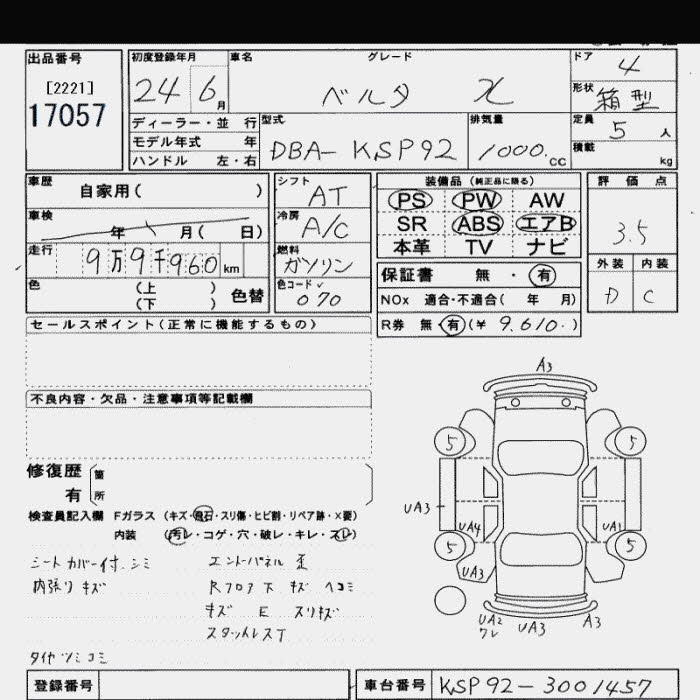 出品番号
[2221]
17057
初度登録年月 車名 グレード ドア
24 6月 ベルタ X 4
形状 箱型
ディーラー・並行 型式 排気量 定員 5人
モデル年式 年 DBA-KSP92 1000.CC 積載 kg
ハンドル 左・右
車歴 自家用( )
車検 年 月( 日)
走行 9万9千960km
色 (上 ) (下 ) 色替
シフト AT
冷房 A/C
燃料 ガソリン
色コード 070
装備品(純正品に限る)
PS PW AW
SR ABS エアB
本革 TV ナビ
保証書 無・有
NOx 適合・不適合( 年 月)
R券 無・有(¥ 9.610.)
評価点
3.5
外装 内装
D C
セールスポイント(正常に機能するもの)
不良内容・欠品・注意事項等記載欄
修復歴 箇
有 所
検査員記入欄 Fガラス (キズ・飛石・スリ傷・ヒビ割・リペア跡・×要)
内装 (汚レ・コゲ・穴・破レ・キレ・スレ)
シートカバー付.シミ エントパネル 歪
内張りキズ Rフロア下 キズ ヘコミ
キズ E スリキズ
スタッドレスT
タイヤツミコミ
A3
5 5
UA3 UA4 UA1
5 5
UA3
UA2 UA3 A3
ワレ
登録番号
車台番号 KSP92-3001457